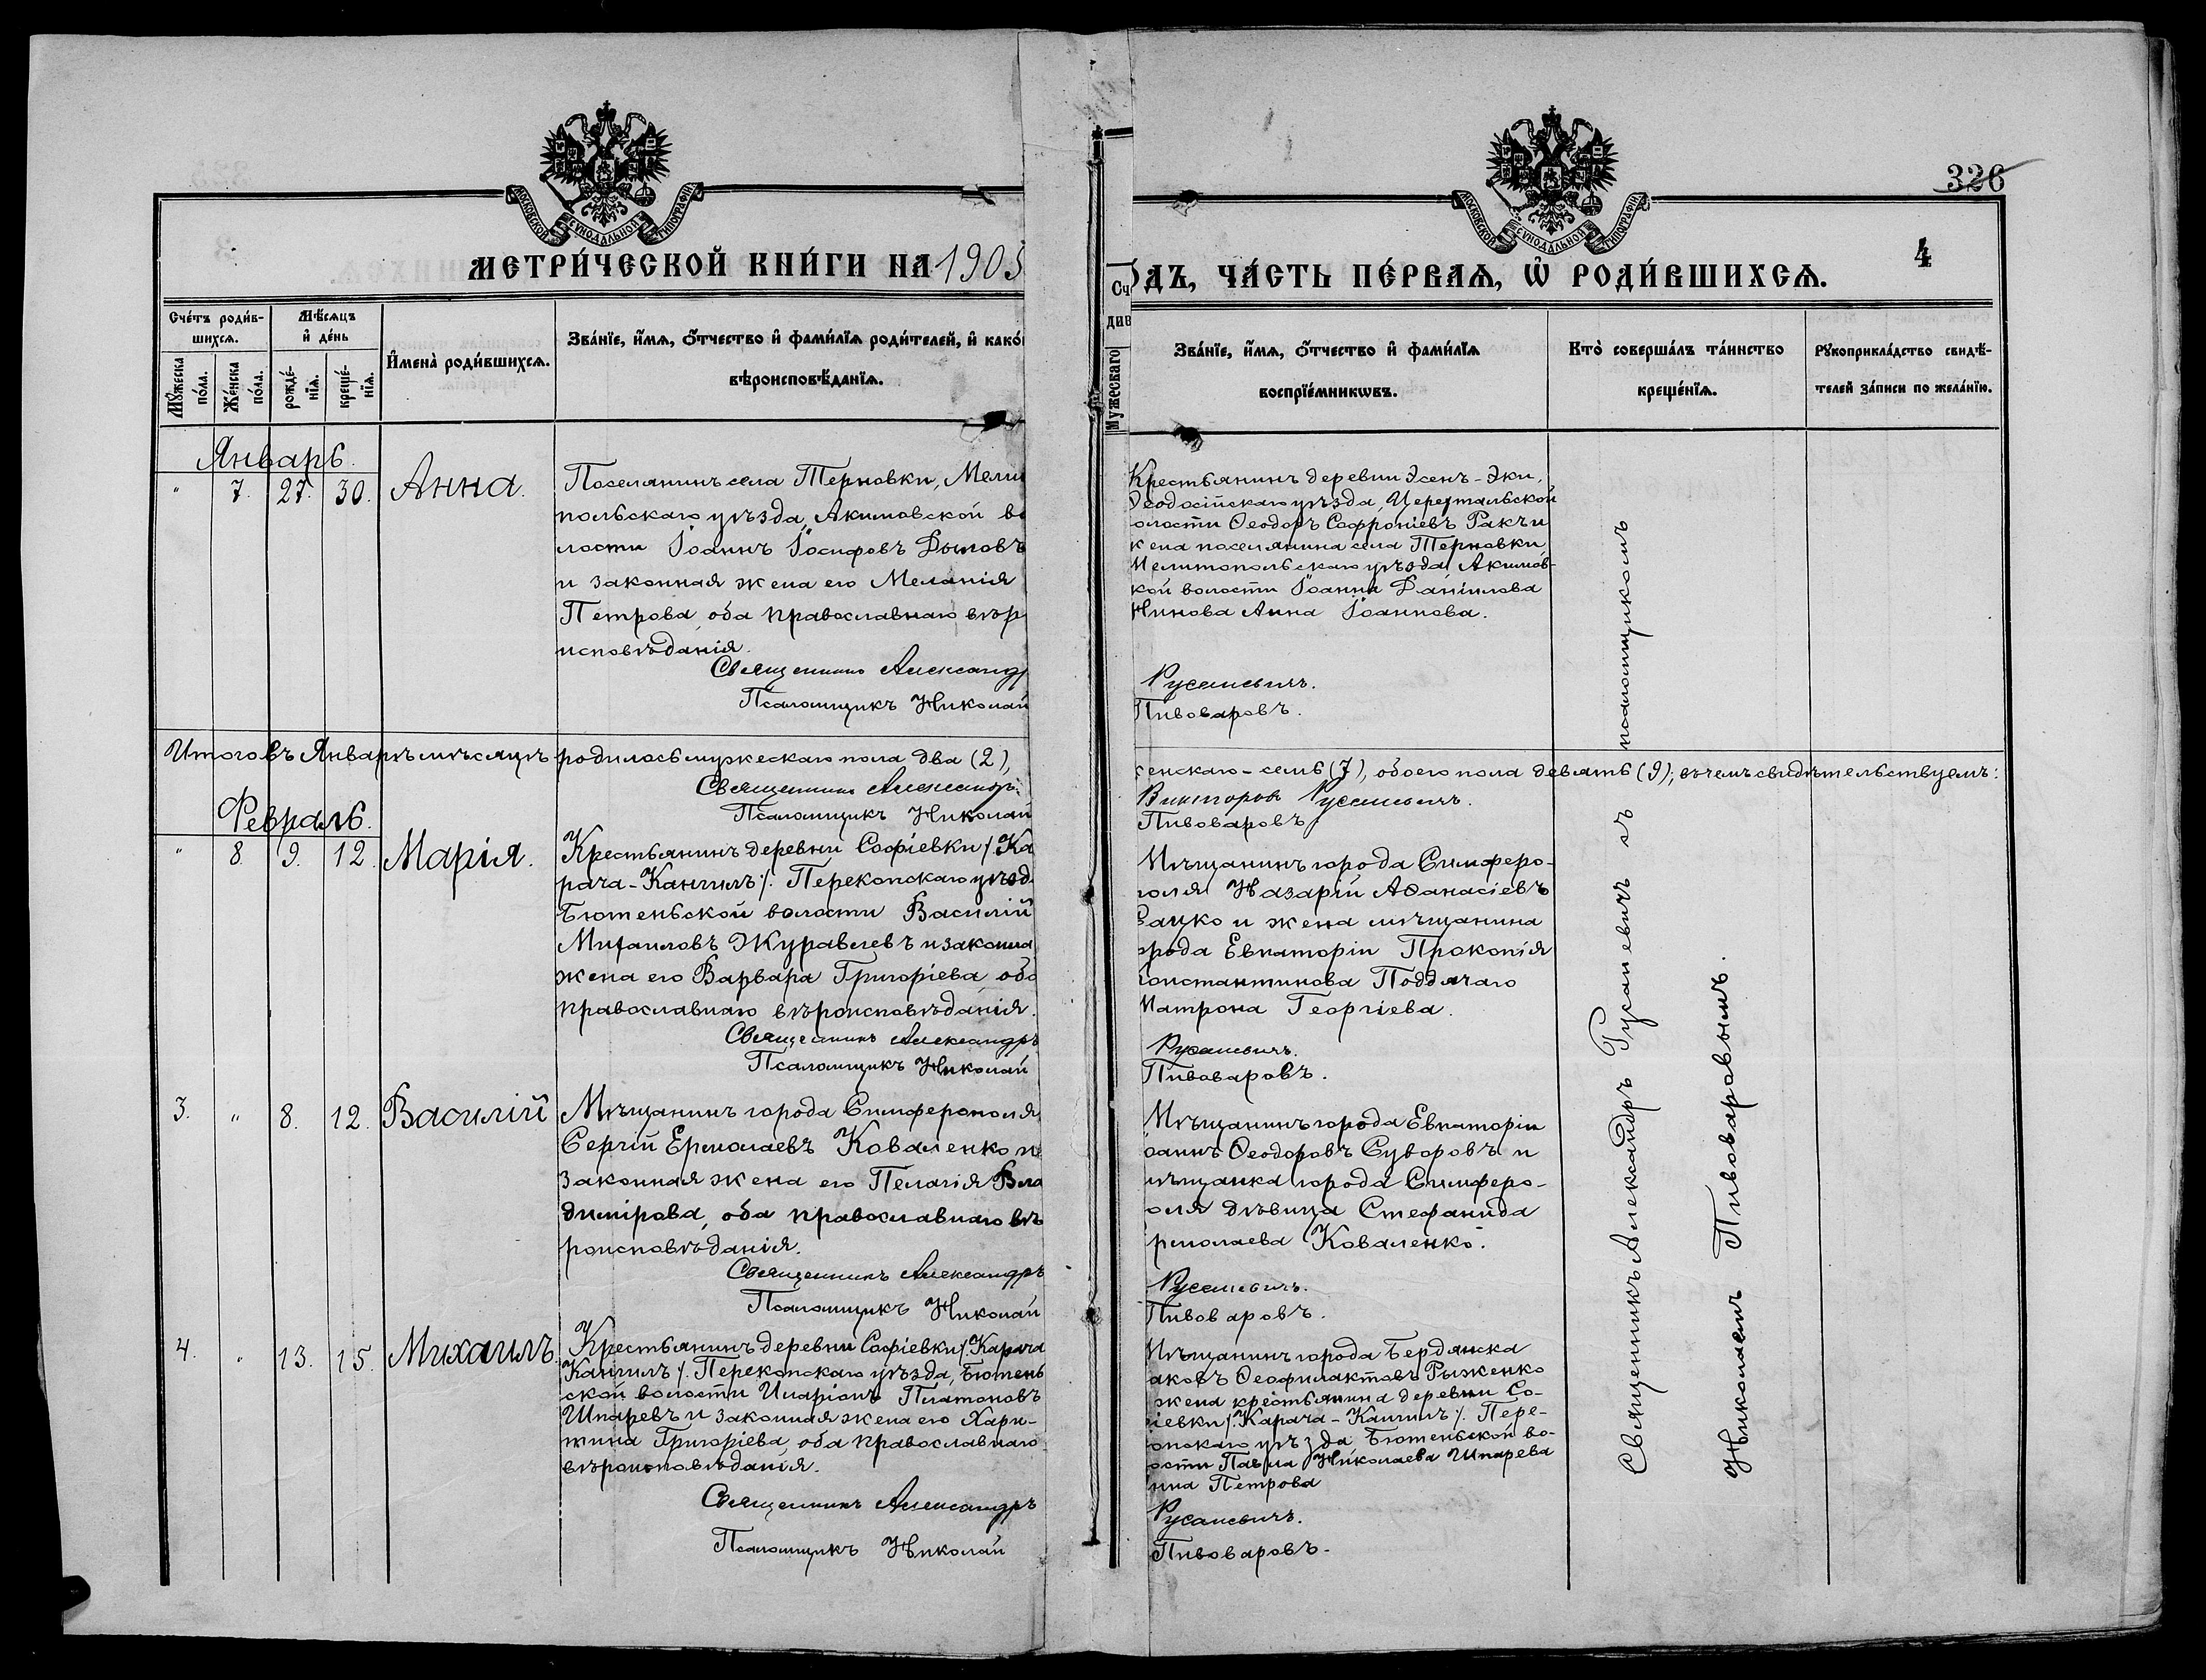 326
4
МОСКОВСКОЙ СУНОДАЛЬНОЙ ТИПОГРАФІИ
МОСКОВСКОЙ СУНОДАЛЬНОЙ ТИПОГРАФІИ
МЕТРИ́ЧЕСКОЙ КНИ́ГИ НА 1905
ОДЪ, ЧА́СТЬ ПЕ́РВАѦ, Ѡ҆ РОДИ́ВШИХСѦ.
Сче́тъ роди́в-
шихсѧ.
Мꙋ́жеска по́ла.
Же́нска по́ла.
Мѣ́сѧцъ
и҆ де́нь
рожде́-
нїѧ.
креще́-
нїѧ.
И҆мена̀ роди́вшихсѧ.
Зва́нїе, и҆́мѧ, ѻ҆́тчество и҆ фами́лїѧ роди́телей, и҆ како́
вѣроисповѣ́данїѧ.
Сч
див
Мужескаго
Зва́нїе, и҆́мѧ, ѻ҆́тчество и҆ фами́лїѧ
воспрїе́мникѡвъ.
Кто̀ соверша́лъ та́инство
креще́нїѧ.
Рꙋкоприкла́дство свидѣ́-
телей за́писи по жела́нїю.
Январь.
" 7. 27. 30. Анна.
Поселянинъ села Терновки, Мели
польскаго уѣзда, Акимовской во
лости Іоаннъ Іосифовъ Дыновъ
и законная жена его Меланія
Петрова, оба православнаго вѣр
исповѣданія.
Священникъ Александр
Псаломщикъ Николай
Крестьянинъ деревни Эсенъ-Эки,
Ѳеодосійскаго уѣзда,
олости Ѳеодоръ Софроніевъ Ракъ и
жена поселянина села Терновки
Мелитопольскаго уѣзда Акимов-
кой волости Іоанна Даніилова
Нинова Анна Іоаннова.
Русаневичъ.
Пивоваровъ.
Итого въ Январѣ мѣсяцѣ родилось мужескаго пола два (2),
енскаго - семь (7), обоего пола девять (9); въ чемъ свидѣтельствуемъ:
Священникъ Александр
Псаломщикъ Николай
Викторовъ Русаневичъ.
Пивоваровъ
Февраль.
" 8. 9. 12. Марія.
Крестьянинъ деревни Софіевки /. Ка
рача-Кангилъ /. Перекопскаго уѣзд.
Бютеньской волости Василій
Михаиловъ Журавлевъ и законна
жена его Варвара Григоріева, оба
православнаго вѣроисповѣданія.
Священникъ Александръ
Псаломщикъ Николай
Мѣщанинъ города Симферо-
поля Назарій Аѳанасіевъ
ацко и жена мѣщанина
орода Евпаторіи Прокопія
онстантинова Поддячаго
Матрона Георгіева.
Русаневичъ.
Пивоваровъ.
3. " 8. 12. Василій
Мѣщанинъ города Симферополя
Сергій Ермолаевъ Коваленко и
законная жена его Пелагія Вла
димірова, оба православнаго вѣ
роисповѣданія.
Священникъ Александръ
Псаломщикъ Николай
Мѣщанинъ города Евпаторіи
оаннъ Ѳеодоровъ Суворовъ и
мѣщанка города Симферо-
оля дѣвица Стефанида
рмолаева Коваленко.
Русаневичъ.
Пивоваровъ.
4. " 13. 15. Михаилъ.
Крестьянинъ деревни Софіевки /. Карача
Кангилъ /. Перекопскаго уѣзда, Бютень
ской волости Иларіонъ Платоновъ
Шпаревъ и законная жена его Хари-
тина Григоріева, оба православнаго
вѣроисповѣданія.
Священникъ Александръ
Псаломщикъ Николай
Мѣщанинъ города Бердянска
аковъ Ѳеофилактовъ Рыженко
жена крестьянина деревни Со-
іевки /. Карача-Кангилъ /. Пере-
опскаго уѣзда, Бютеньской во-
ости Павла Николаева Шпарева
нна Петрова
Русаневичъ.
Пивоваровъ.
Священникъ Александръ Русаневичъ съ псаломщикомъ
Николаемъ Пивоваровымъ.